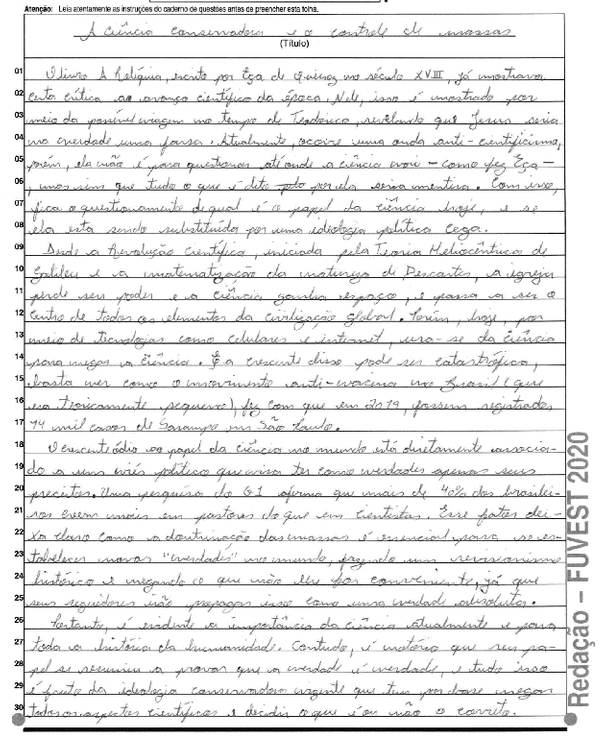 Atenção: Leia atentamente as instruções do caderno de questões antes de preencher esta folha.
A ciência conservadora e o controle de massas
(Título)
01 O livro A Relíquia, escrito por Eça de Queiroz no século XVIII, já mostrava
02 certa crítica ao avanço científico da época. Nele, isso é mostrado por
03 meio da possível viagem no tempo de Teodorico, revelando que Jesus seria
04 na verdade uma farsa. Atualmente, ocorre uma onda anti-cientificismo,
05 porém, ela não é para questionar até onde a ciência vai - como fez Eça -
06 , mas sim que tudo o que é dito por ela seria mentira. Com isso,
07 fica o questionamento de qual é o papel da ciência hoje, e se
08 ela está sendo substituída por uma ideologia política cega.
09 Desde a Revolução Científica, iniciada pela Teoria Heliocêntrica de
10 Galileu e a matematização da natureza de Descartes, a igreja
11 perde seu poder e a ciência ganha espaço, e passa a ser o
12 centro de todos os elementos da civilização global. Porém, hoje, por
13 meio de tecnologias como celulares e internet, usa-se da ciência
14 para negar a ciência. E a crescente disso pode ser catastrófica,
15 basta ver como o movimento anti-vacina no Brasil (que
16 era teoricamente pequeno), fez com que em 2019, fossem registrados
17 14 mil casos de Sarampo em São Paulo.
18 O crescente ódio ao papel da ciência no mundo está diretamente associa-
19 do a um viés político que visa ter como verdades apenas seus
20 preceitos. Uma pesquisa do G1 afirma que mais de 40% dos brasilei-
21 ros creem mais em pastores do que em cientistas. Esse fator dei-
22 xa claro como a doutrinação das massas é essencial para se es-
23 tabelecer novas "verdades" no mundo, fazendo um revisionismo
24 histórico e negando o que não lhe for conveniente, já que
25 seus seguidores irão propagar isso como uma verdade absoluta.
26 Portanto, é evidente a importância da ciência atualmente e para
27 toda a história da humanidade. Contudo, é notório que seu pa-
28 pel se resumiu a provar que a verdade é verdade, e tudo isso
29 é fruto da ideologia conservadora vigente que tem por base negar
30 todos os aspectos científicos e decidir o que é ou não o correto.
Redação – FUVEST 2020